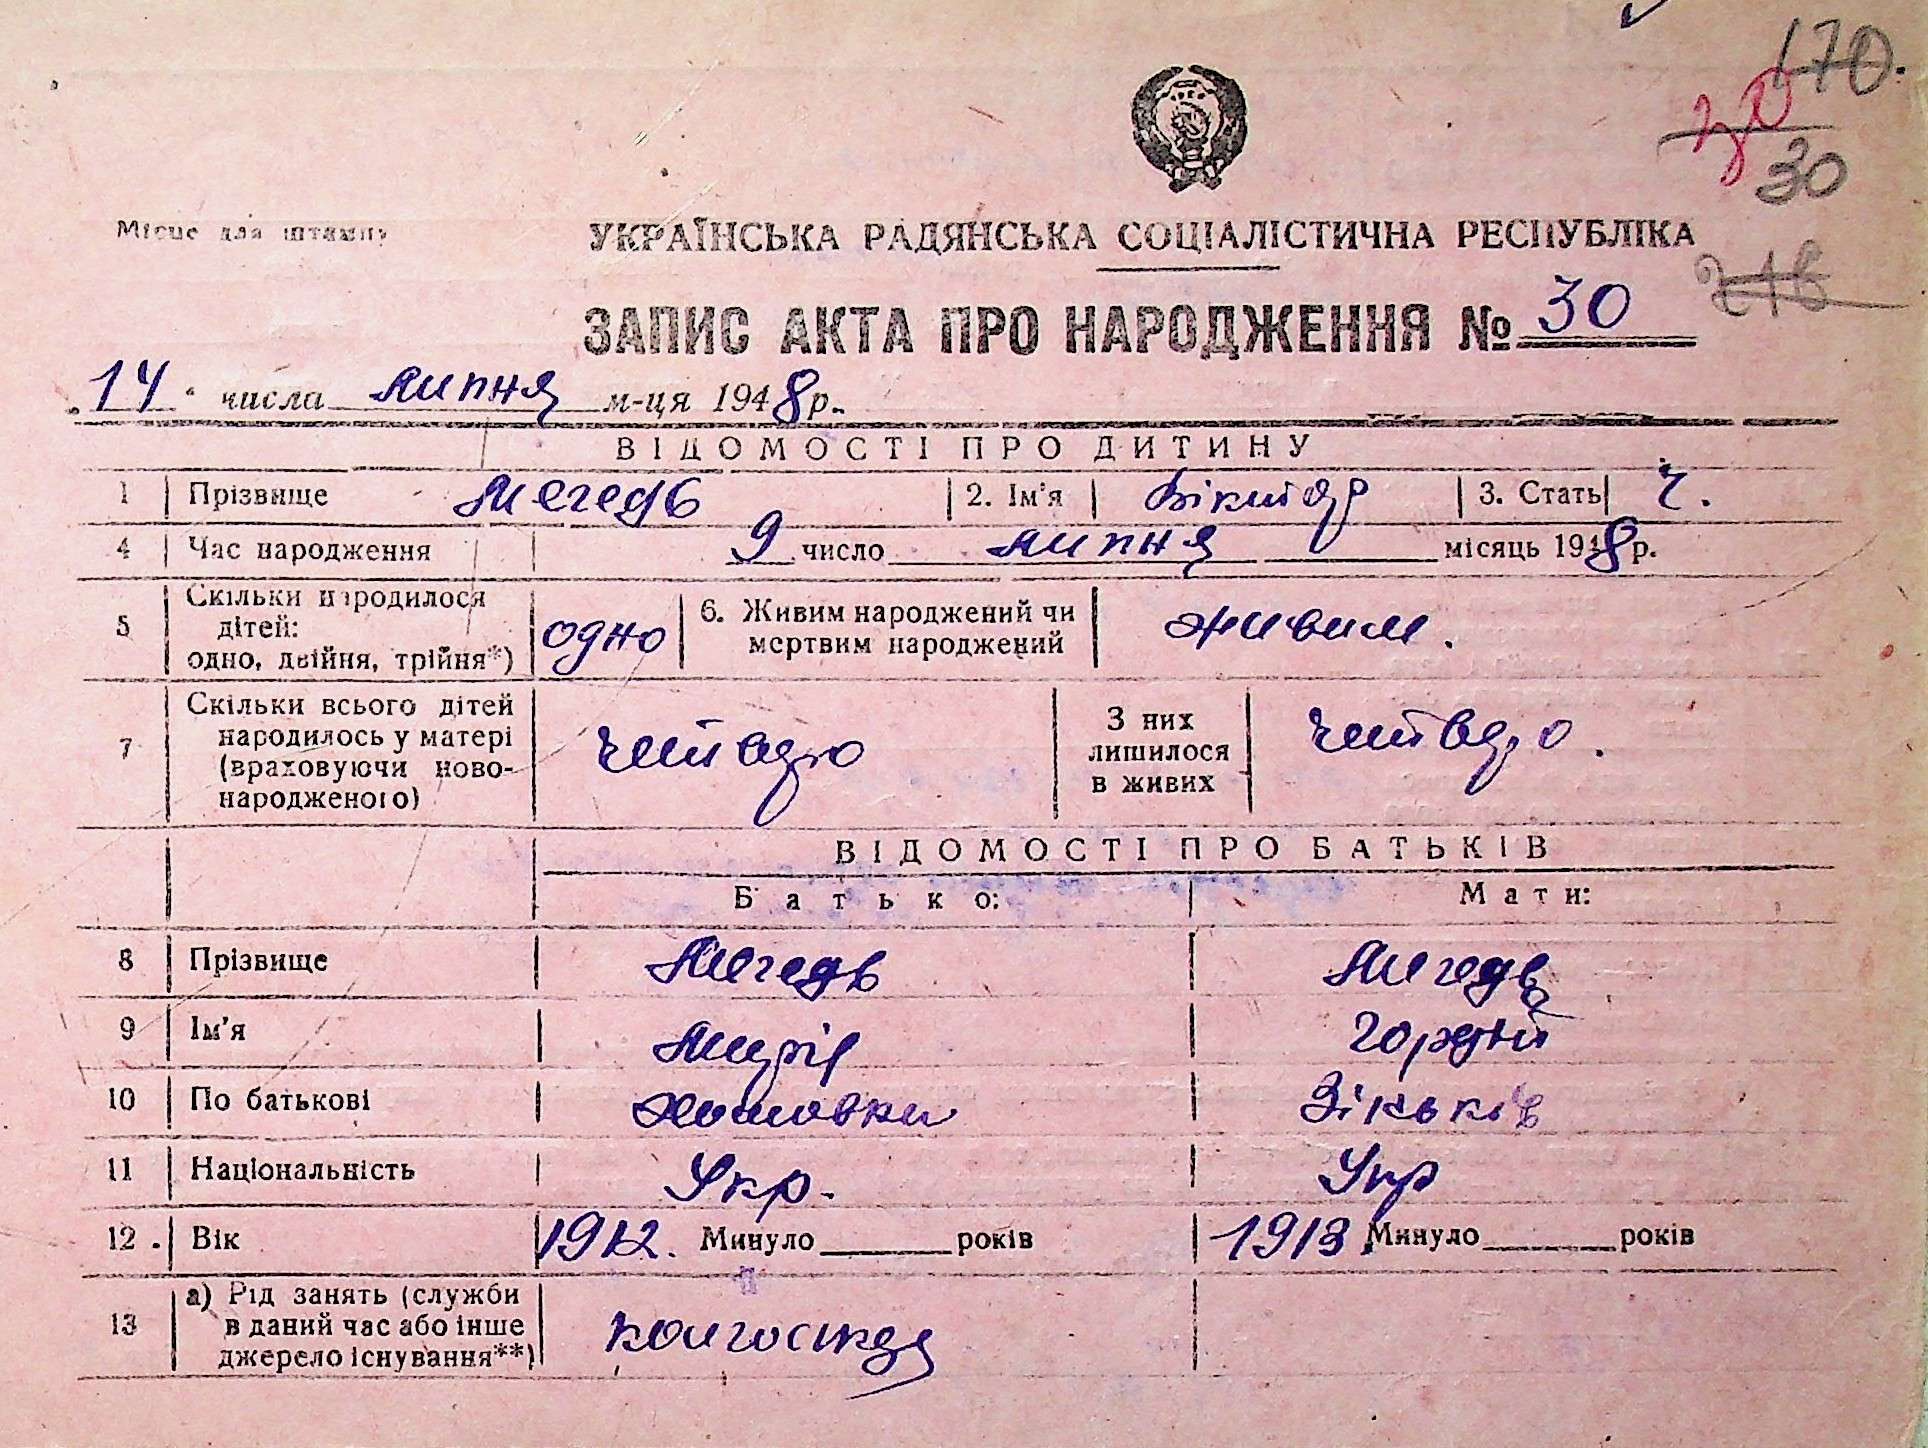 170.
30
Місце для штампу
УКРАЇНСЬКА РАДЯНСЬКА СОЦІАЛІСТИЧНА РЕСПУБЛІКА
ЗАПИС АКТА ПРО НАРОДЖЕННЯ № 30
„14“ числа липня м-ця 1948 р.
ВІДОМОСТІ ПРО ДИТИНУ
1 Прізвище Мегедь 2. Ім'я Віктор 3. Стать ч.
4 Час народження 9 число липня місяць 1948 р.
5 Скільки народилося дітей: одно, двійня, трійня*) одно 6. Живим народжений чи мертвим народжений живим.
7 Скільки всього дітей народилось у матері (враховуючи ново-народженого) четверо З них лишилося в живих четверо.
ВІДОМОСТІ ПРО БАТЬКІВ
Батько: Мати:
8 Прізвище Мегедь Мегедь
9 Ім'я
10 По батькові
11 Національність Укр. Укр
12. Вік 1912. Минуло років 1913. Минуло років
13 а) Рід занять (служби в даний час або інше джерело існування**)